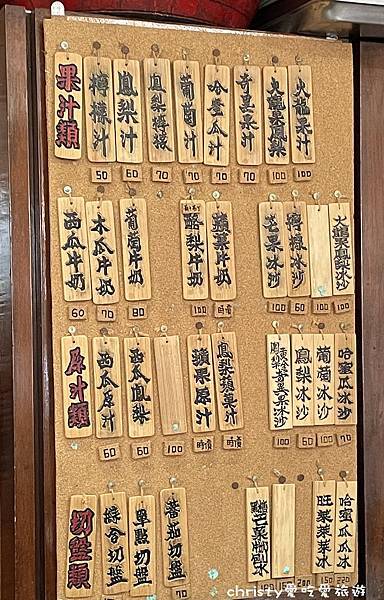 果汁類
檸檬汁
50
鳳梨汁
60
鳳梨檸檬
70
葡萄汁
70
哈蜜瓜汁
70
奇異果汁
70
火龍果鳳梨
100
火龍果汁
100
西瓜牛奶
60
木瓜牛奶
70
葡萄牛奶
80
酪梨牛奶
100
蘋果牛奶
時價
芒果冰沙
100
檸檬冰沙
60
火龍果鳳梨冰沙
100
原汁類
西瓜原汁
60
西瓜鳳梨
60
100
蘋果原汁
時價
鳳梨蘋果汁
時價
奇異果冰沙
100
鳳梨冰沙
60
葡萄冰沙
100
哈蜜瓜冰沙
70
切盤類
綜合切盤
單點切盤
蕃茄切盤
70
芒果
150
200
旺萊萊冰
150
哈蜜瓜瓜冰
220
christy愛吃愛旅遊